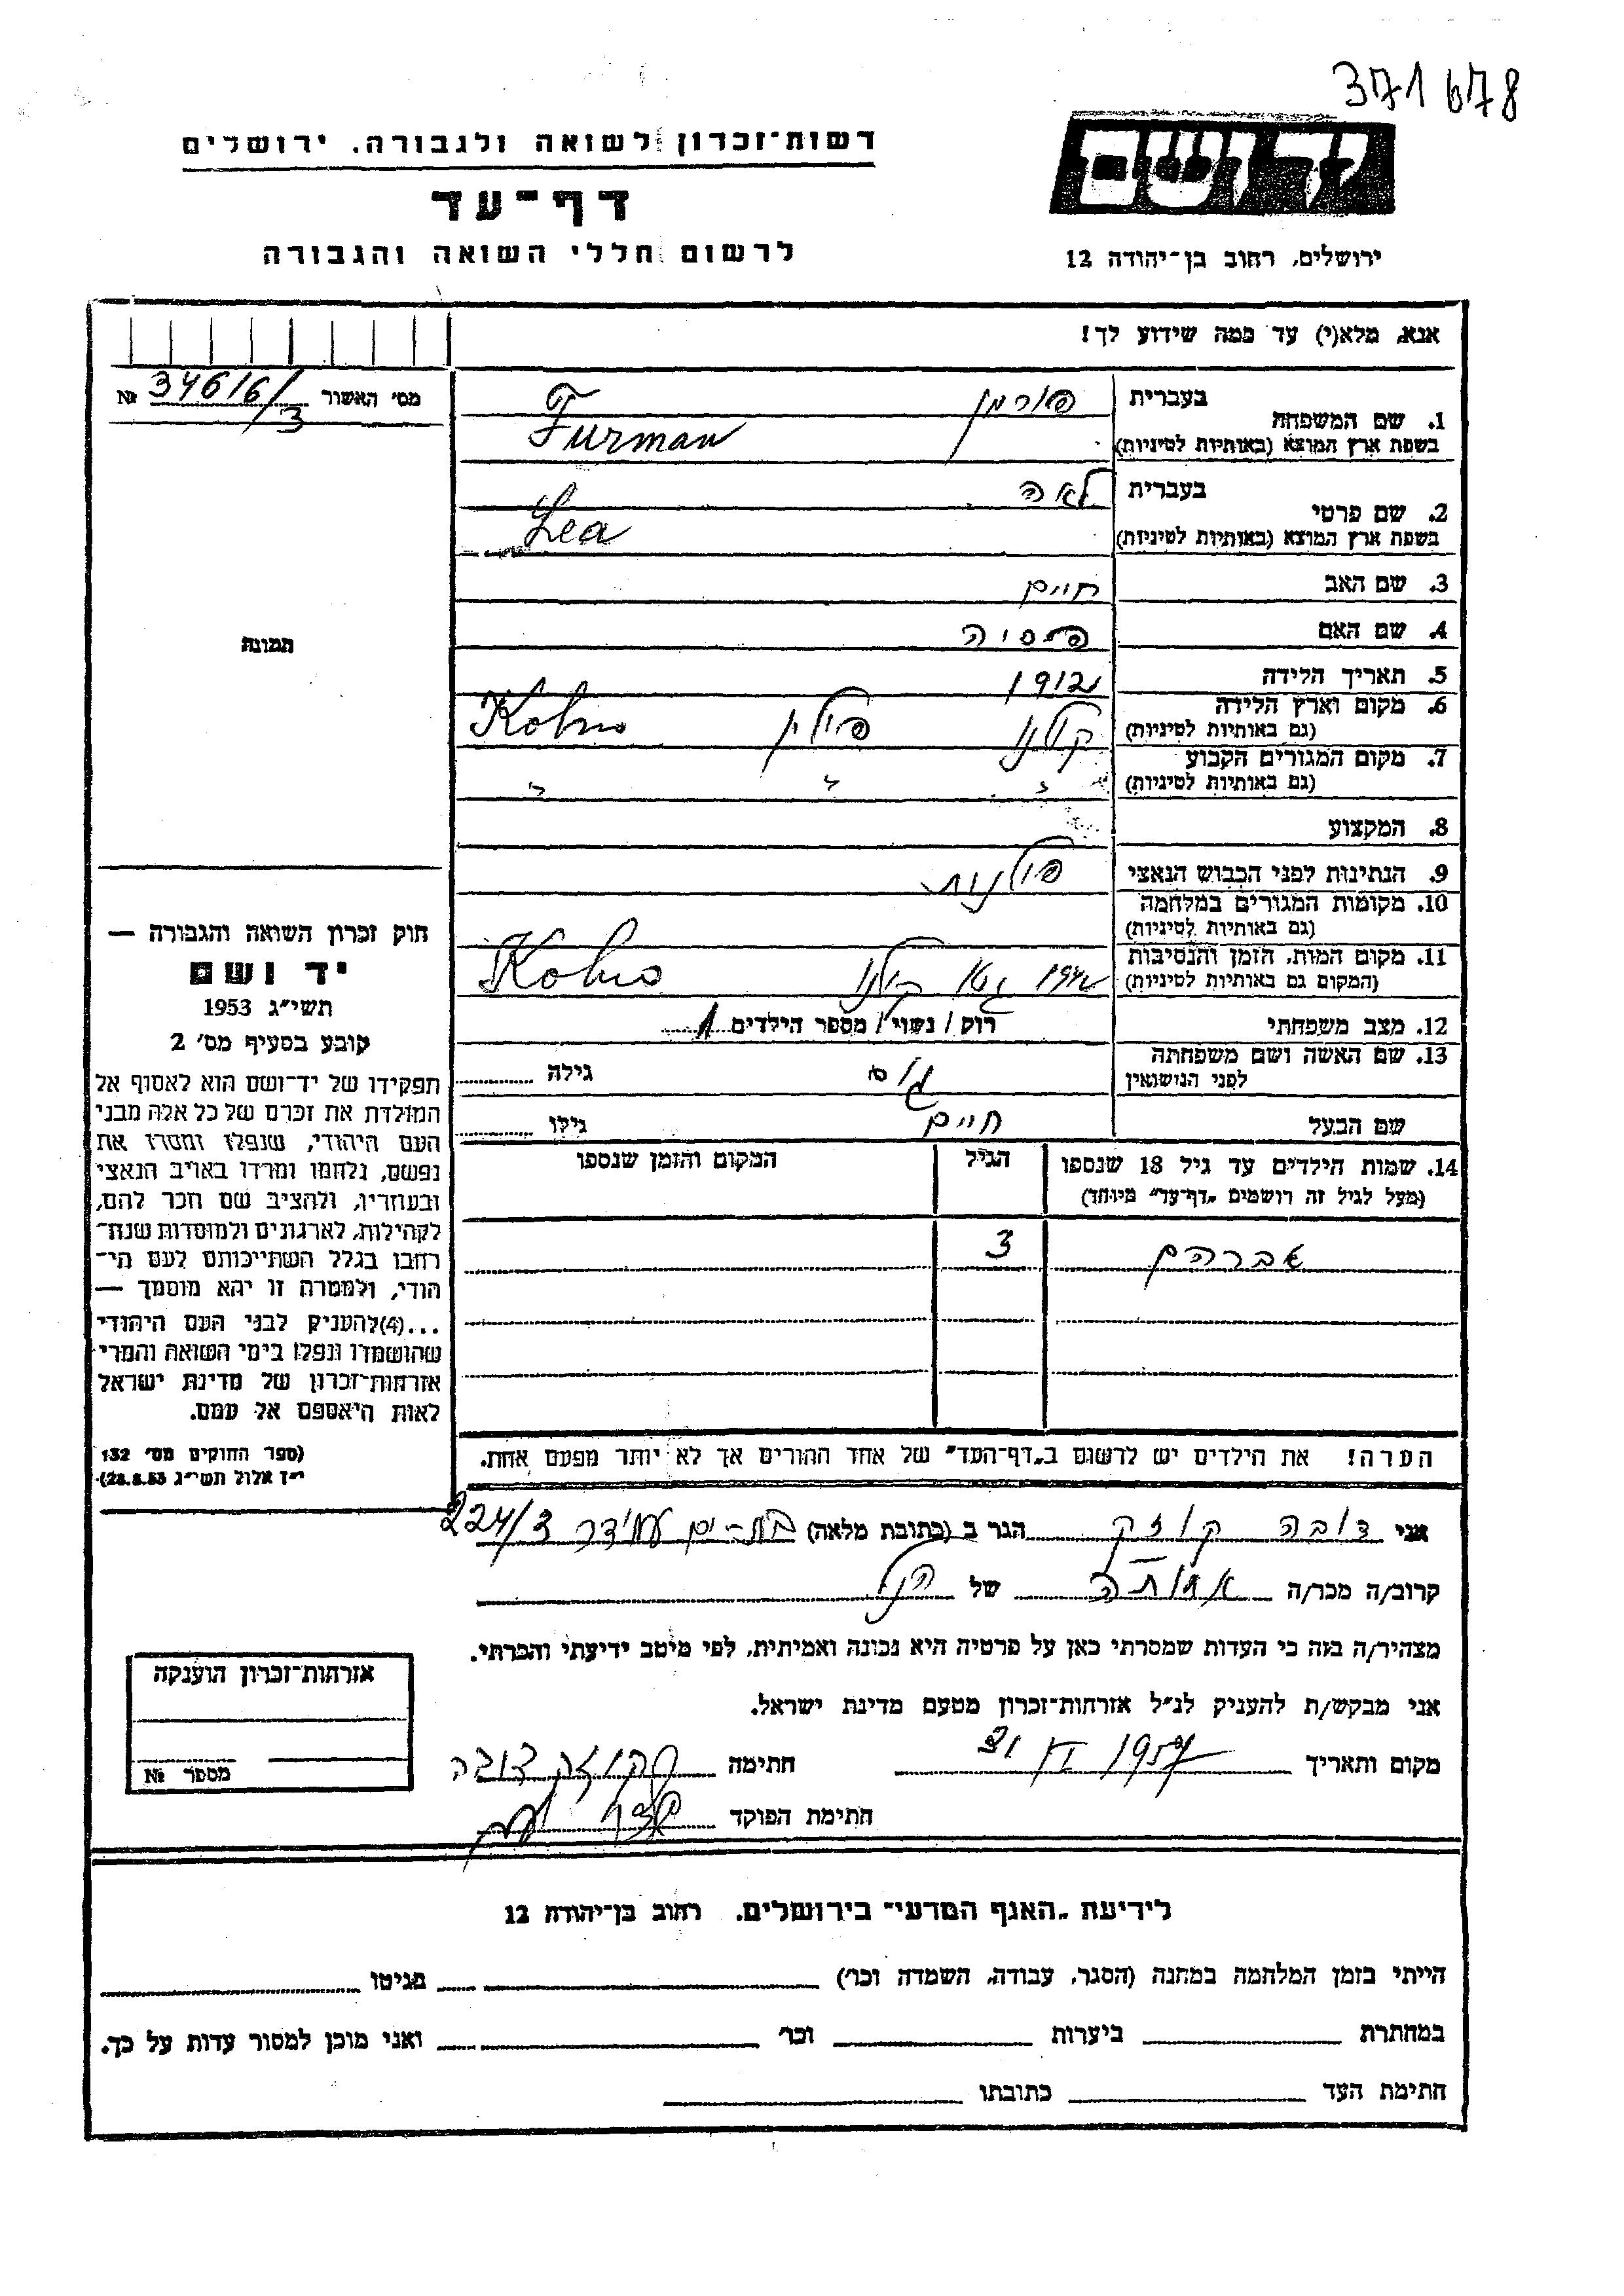 371678
רשות־זכרון לשואה ולגבורה. ירושלים
דף־עד
לרשום חללי השואה והגבורה
יד ושם
ירושלים, רחוב בן־יהודה 12
אנא, מלא(י) עד כמה שידוע לך!
מס׳ האשור 34616/3 №
1. שם המשפחה בעברית פורמן
בשפת ארץ המוצא (באותיות לטיניות) Furman
2. שם פרטי בעברית לאה
בשפת ארץ המוצא (באותיות לטיניות) Lea
3. שם האב חיים
4. שם האם פסיה
5. תאריך הלידה 1912
6. מקום וארץ הלידה קולנו פולין Kolno
(גם באותיות לטיניות)
7. מקום המגורים הקבוע " " "
(גם באותיות לטיניות)
8. המקצוע
9. הנתינות לפני הכבוש הנאצי פולנית
10. מקומות המגורים במלחמה
(גם באותיות לטיניות)
11. מקום המות, הזמן והנסיבות 1942 גטו קולנו Kolno
(המקום גם באותיות לטיניות)
12. מצב משפחתי רוק / נשוי / מספר הילדים 1
13. שם האשה ושם משפחתה
לפני הנושואין גילה
שם הבעל חיים גילו
14. שמות הילדים עד גיל 18 שנספו הגיל המקום והזמן שנספו
(מעל לגיל זה רושמים „דף־עד” מיוחד)
אברהם 3
הערה! את הילדים יש לרשום ב„דף־העד” של אחד ההורים אך לא יותר מפעם אחת.
תמונה
חוק זכרון השואה והגבורה —
יד ושם
תשי״ג 1953
קובע בסעיף מס׳ 2
תפקידו של יד־ושם הוא לאסוף אל
המולדת את זכרם של כל אלה מבני
העם היהודי, שנפלו ומסרו את
נפשם, נלחמו ומרדו באויב הנאצי
ובעוזריו, ולהציב שם וזכר להם,
לקהילות, לארגונים ולמוסדות שנח־
רחבו בגלל השתייכותם לעם הי־
הודי, ולמטרה זו יהא מוסמך —
...(4)להעניק לבני העם היהודי
שהושמדו ונפלו בימי השואה והמרי
אזרחות־זכרון של מדינת ישראל
לאות היאספם אל עמם.
(ספר החוקים מס׳ 132
י״ד אלול תשי״ג 28.8.53)
אני דובה קוזק הגר ב (כתובת מלאה) בת-ים עמידר 224/3
קרוב/ה מכר/ה אחותה של הנ״ל
מצהיר/ה בזה כי העדות שמסרתי כאן על פרטיה היא נכונה ואמיתית, לפי מיטב ידיעתי והכרתי.
אני מבקש/ת להעניק לנ״ל אזרחות־זכרון מטעם מדינת ישראל.
מקום ותאריך חתימה קוזק דובה
חתימת הפוקד
אזרחות־זכרון הוענקה
מספר №
לידיעת „האגף המדעי” בירושלים. רחוב בן־יהודה 12
הייתי בזמן המלחמה במחנה (הסגר, עבודה, השמדה וכו׳) בגיטו
במחתרת ביערות וכו׳ ואני מוכן למסור עדות על כך.
חתימת העד כתובתו